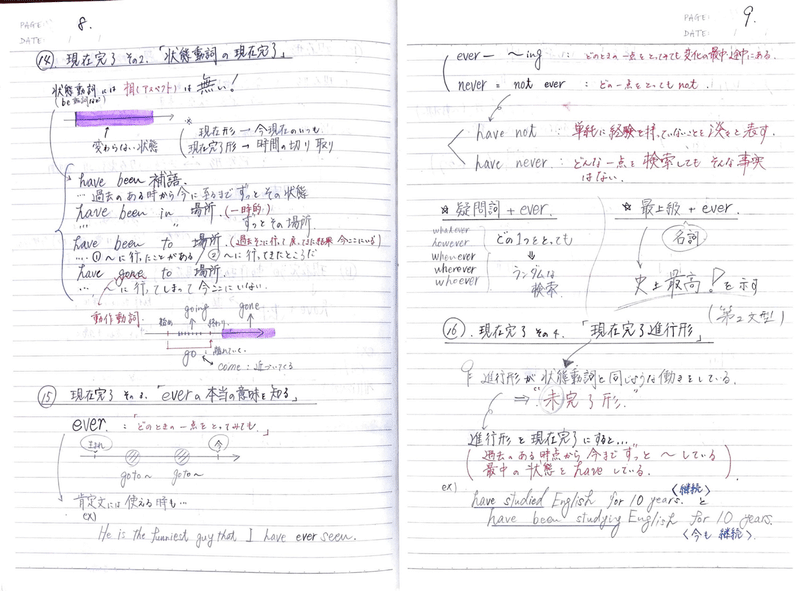 PAGE: 8.
DATE: / /
⑭ 現在完了 その2.「状態動詞の現在完了」
状態動詞には 相(アスペクト)は 無い!
(be動詞など)
変わらない状態
※
現在形 → 今現在のいつも
現在完了形 → 時間の切り取り
have been 補語.
… 過去のある時から今に至るまで ずっとその状態
have been in 場所.(一時的)
… 〃 ずっとその場所.
have been to 場所.(過去そこに行って戻ってきた結果 今ここにいる)
… ① 〜に行ったことがある ② 〜に行ってきたところだ
have gone to 場所.
… 〜に行ってしまって今ここにいない.
動作動詞
going
gone
始め 終わり
go : 離れていく
come : 近づいてくる
⑮ 現在完了 その3.「everの本当の意味を知る」
ever. :「どのときの一点をとってみても」
今
go to 〜 go to 〜
肯定文には使える時も…
ex)
He is the funniest guy that I have ever seen.
PAGE: 9.
DATE: / /
ever − 〜ing : どのときの一点をとってみても変化の最中・途中にある.
never = not ever : どの一点をとっても not.
have not : 単純に経験を持っていないことを淡々と表す.
have never : どんな一点を検索しても そんな事実はない.
☆ 疑問詞 + ever.
whatever
however
whenever
wherever
whoever
どの1つをとっても
⇓
ランダムな
検索.
☆ 最上級 + ever.
名詞
史上最高!を示す
(第2文型)
⑯. 現在完了 その4.「現在完了進行形」
進行形が状態動詞と同じような働きをしている.
⇒ "未完了形."
進行形を現在完了にすると…
(過去のある時点から今までずっと〜している
最中の状態をhaveしている.)
ex)
have studied English for 10 years.〈継続〉と
have been studying English for 10 years.
〈今も継続〉